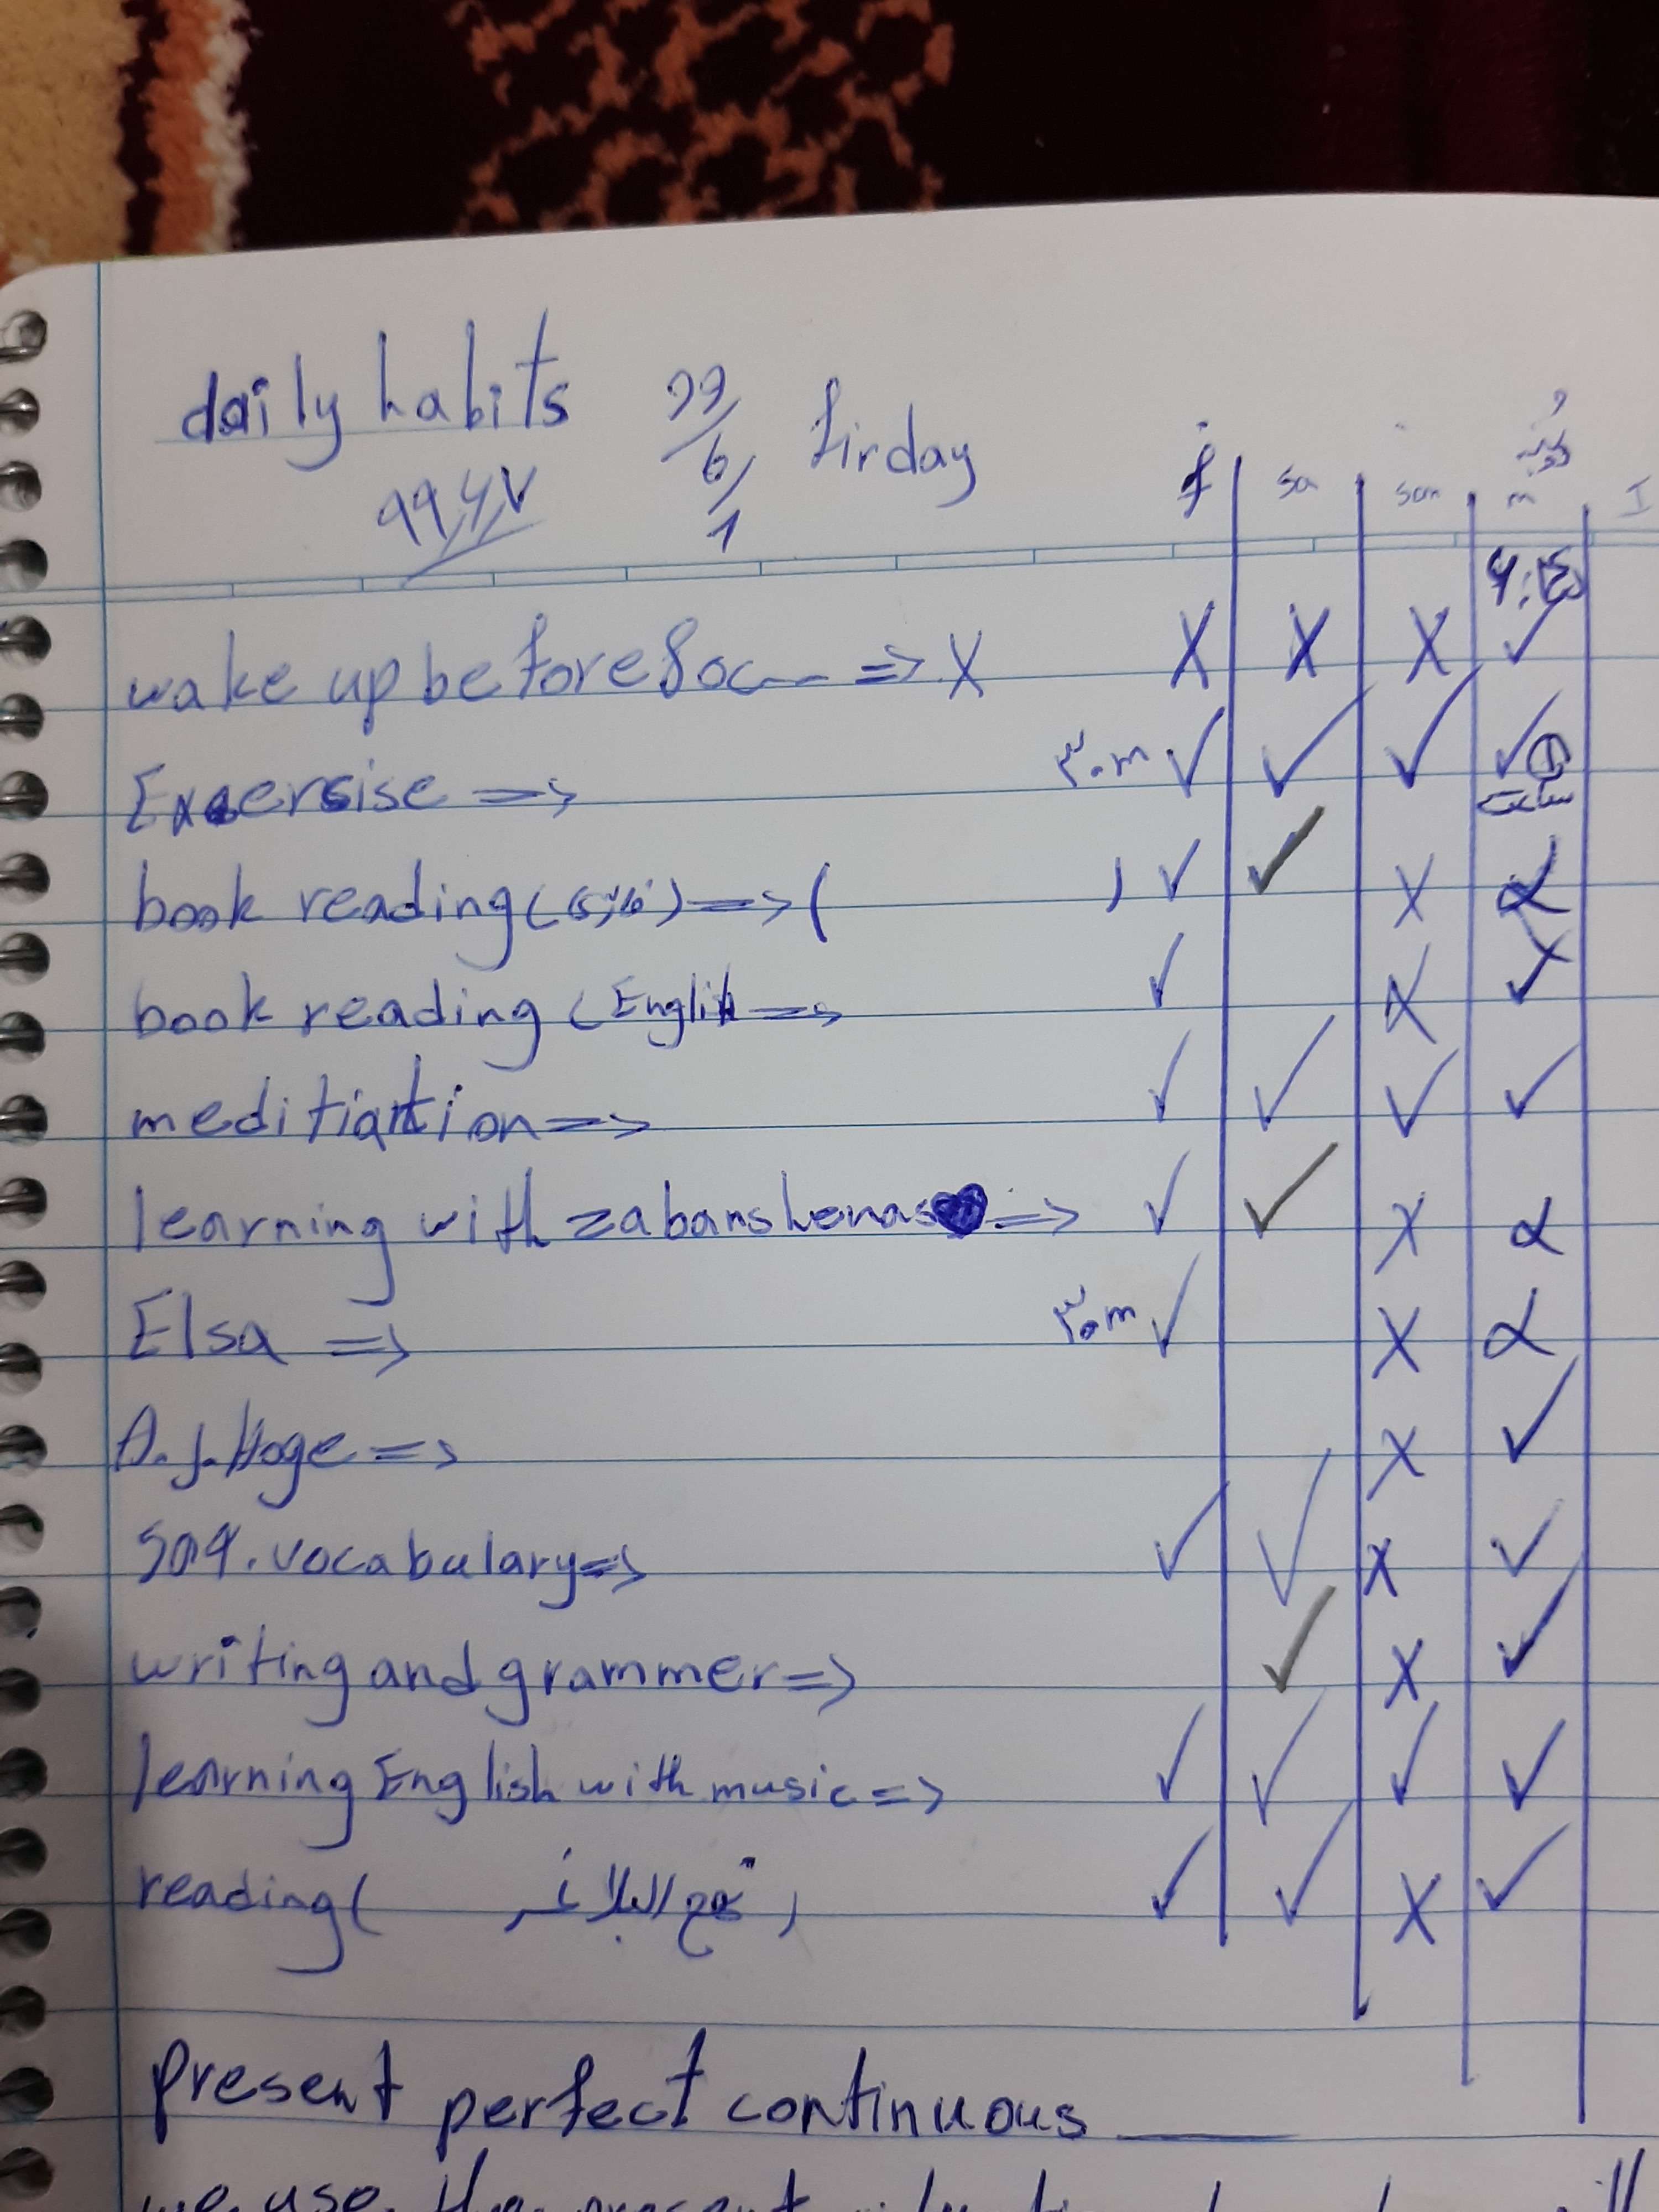 daily habits 99/6/1 firday
99/6/7
f sa san m
wake up before 8 oc => X X X X ✓
Excersise => ۳۰m ✓ ✓ ✓ ✓ ① ساعت
book reading (فارسی) => ( ) ✓ ✓ X X
book reading (English => ✓ X ✓
meditiation => ✓ ✓ ✓ ✓
learning with zabanshenas => ✓ ✓ X X
Elsa => ۳۰m ✓ X X
A.j.Hoge => X ✓
504.vocabulary => ✓ ✓ X ✓
writing and grammer => ✓ X ✓
learning English with music => ✓ ✓ ✓ ✓
reading ( نهج البلاغه ) ✓ ✓ X ✓
present perfect continuous
we use the present